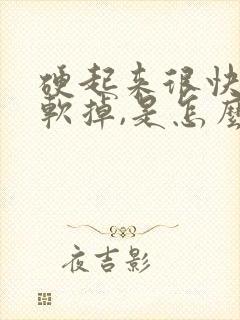 硬起来很快
軟掉,是怎麼
夜吉影